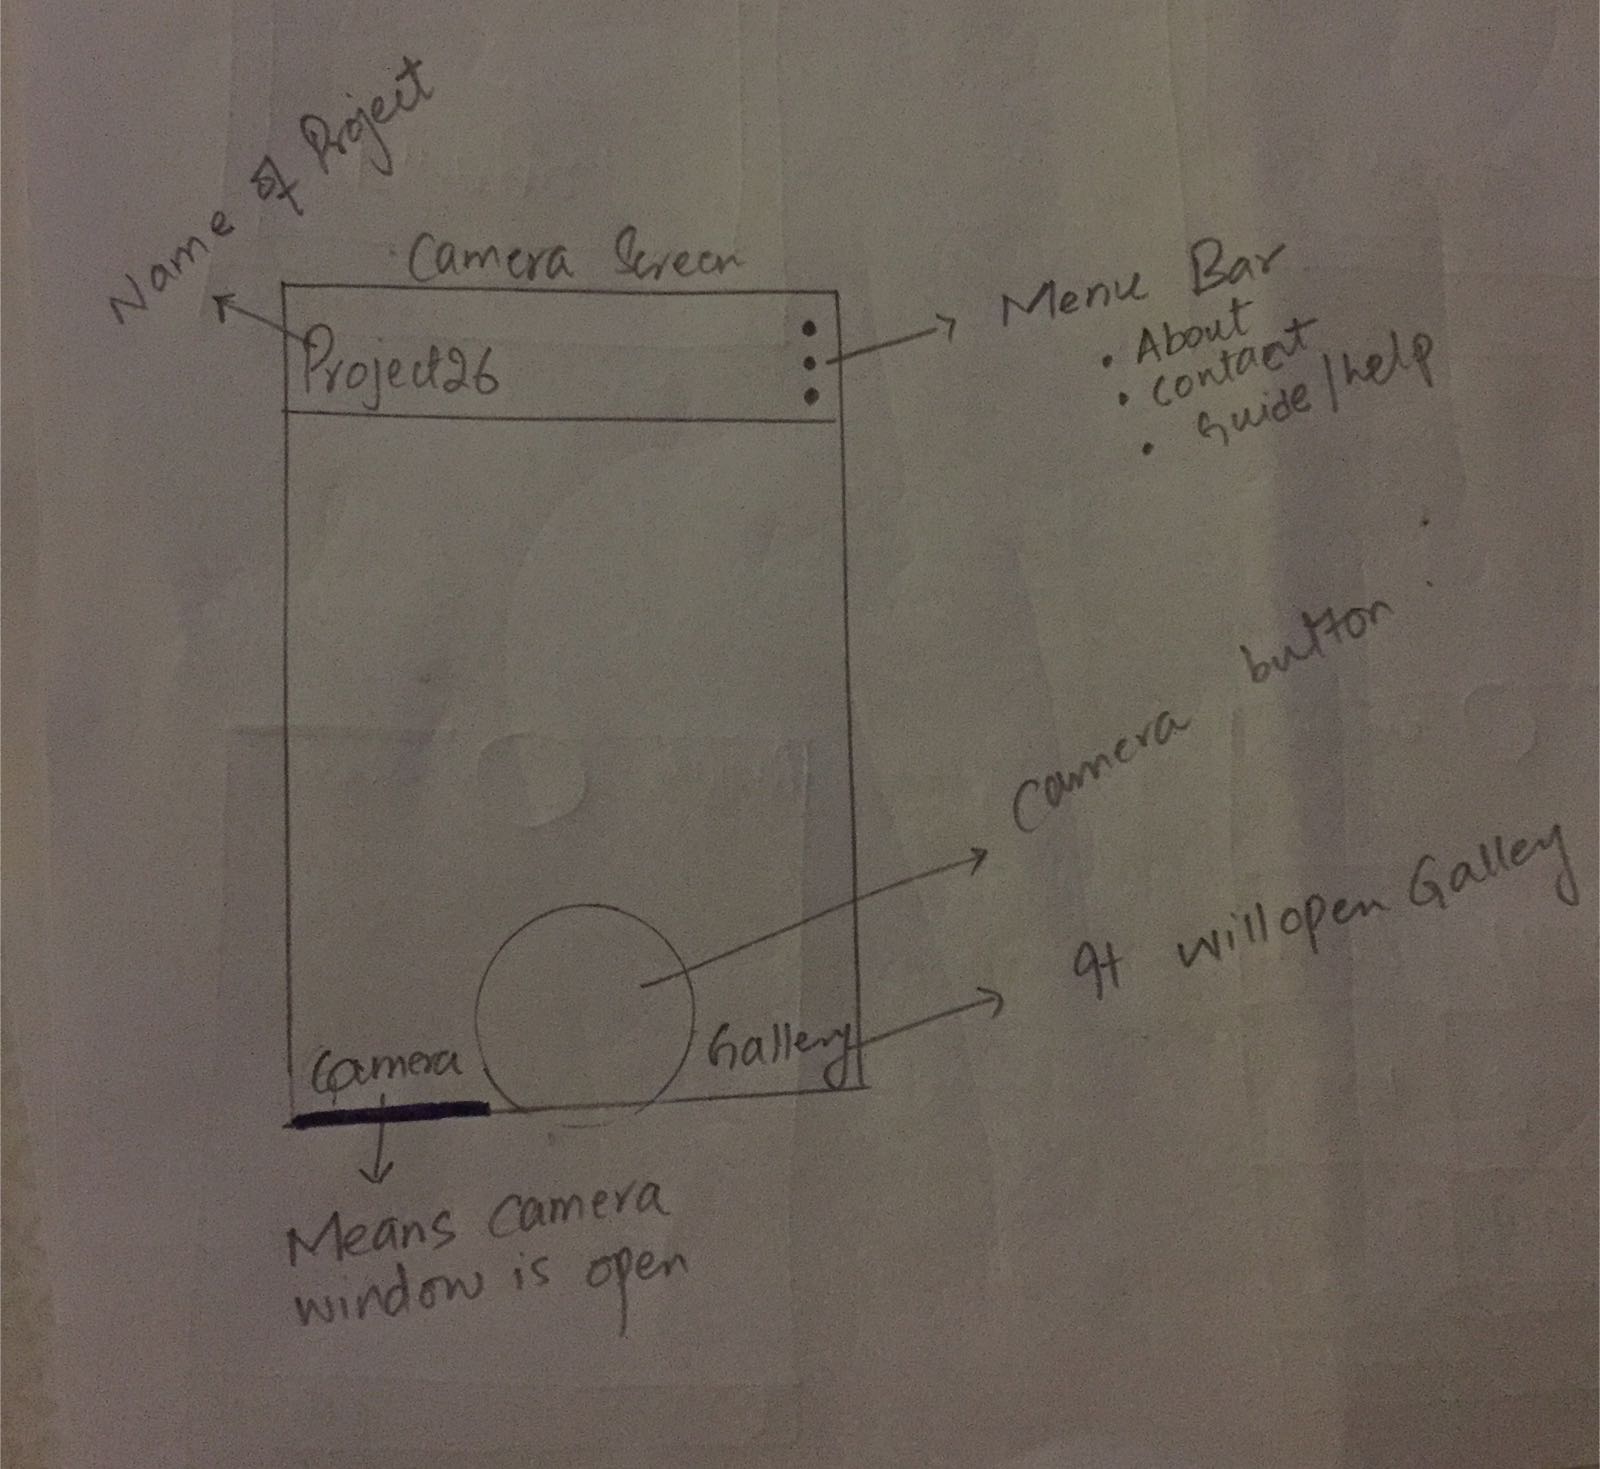 Name of Project
Camera Screen
Project26
Menu Bar
• About
• Contact
• Guide/help
Camera button
It will open Gallery
Camera
Gallery
Means Camera
window is open